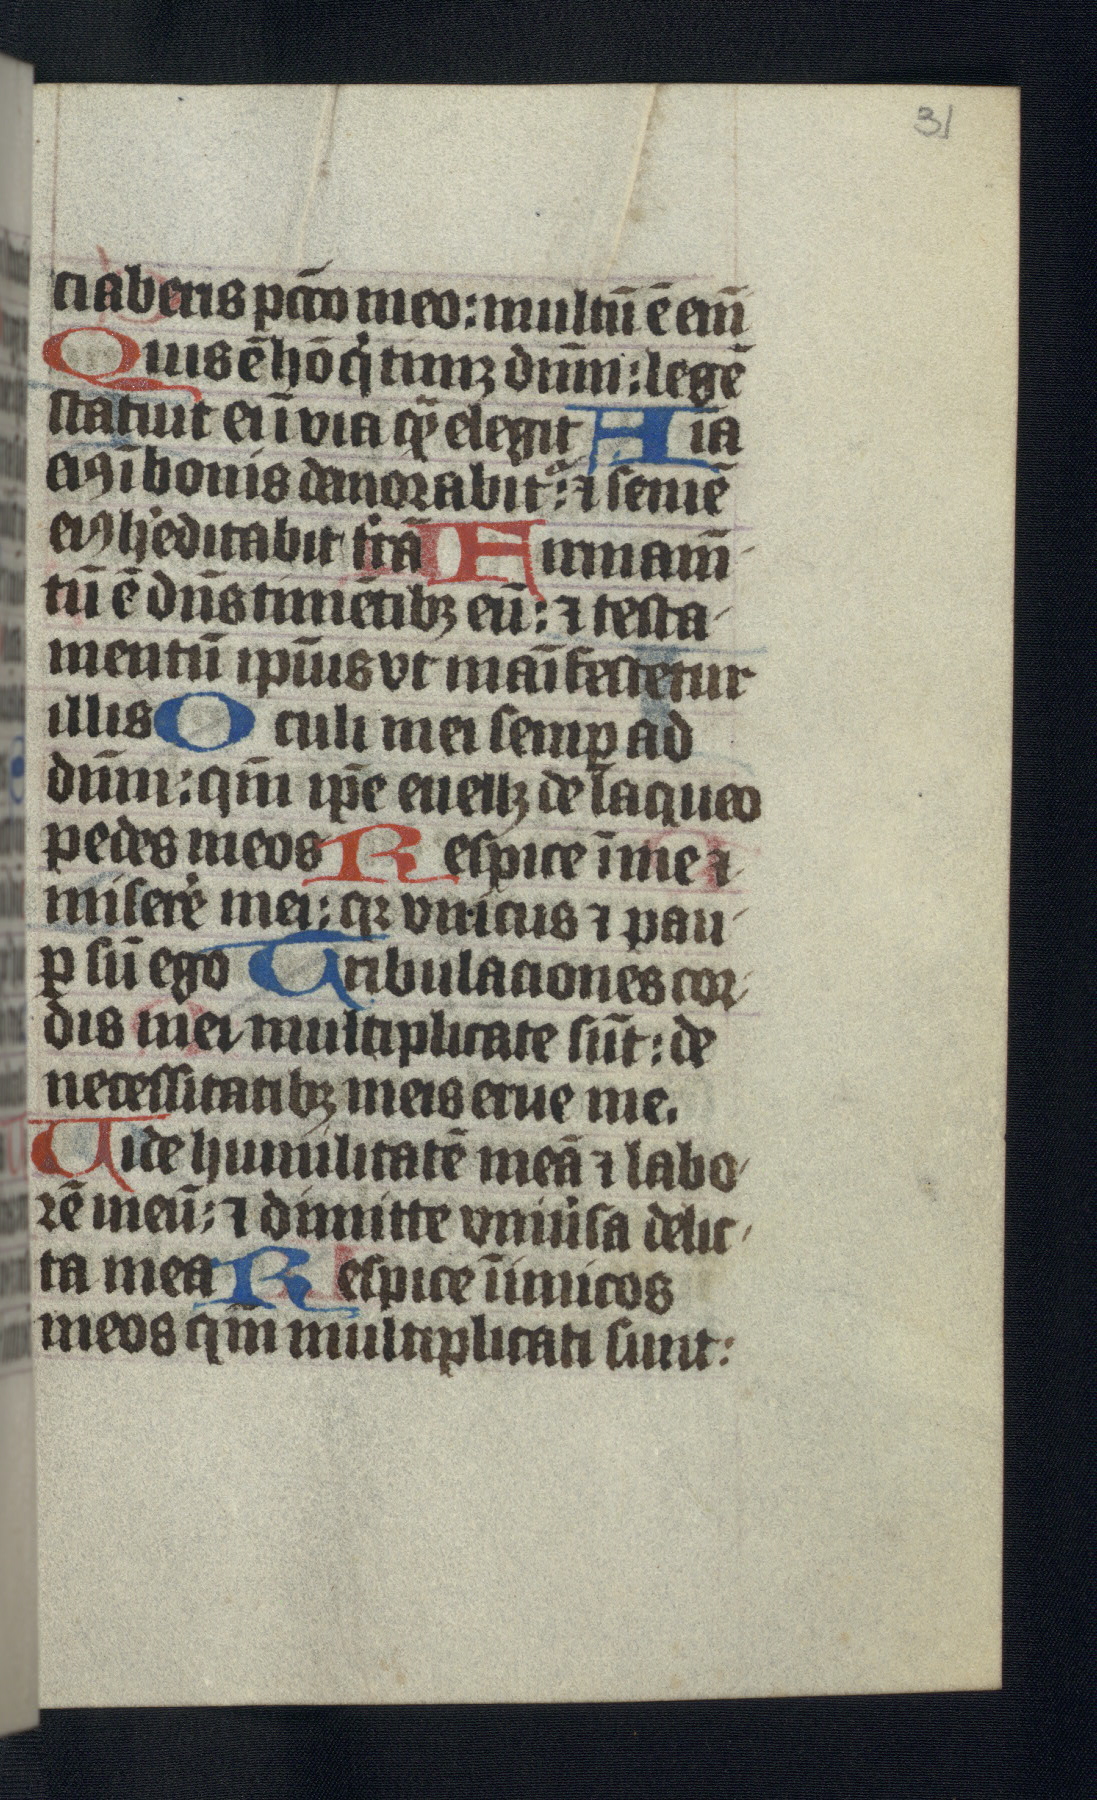 31
ciaberis pctō meo: multū ē eni̅
Quis ē hō qͥ timꝫ dn̄m: legē
statuit ei ī via qͣ̄ elegit Aīa
eiꝰ ī bonis demorabit᷑: ⁊ semē
eiꝰ hͤeditabit tͥrā Firmam̄
tū ē dn̄s timētibꝫ eū: ⁊ testa
mentū ip̄ius vt māifestetur
illis Oculi mei semꝑ ad
dn̄m: qm̄ ip̄e euellꝫ de laqueo
pedes meos Respice ī me ⁊
miserē mei: qꝛ vnicus ⁊ pau
ꝑ sū ego Tribulaciones cor
dis mei multiplicate sūt: de
necessitatibꝫ meis erue me.
Vide humilitatē meā ⁊ labo
rē meū: ⁊ dimitte vniūsa delic
ta mea Respice īimicos
meos qm̄ multiplicati sunt: